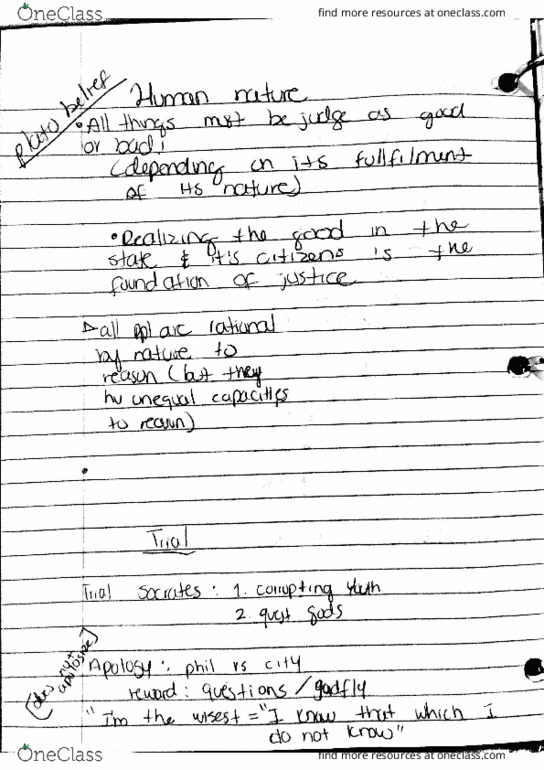 OneClass
find more resources at oneclass.com
plato belief
Human nature
• All things must be judge as good
or bad;
(depending on its fullfilment
of its nature)
• Realizing the good in the
state & it's citizens is the
foundation of justice
▷ all ppl are rational
by nature to
reason (but they
hv unequal capacities
to reason)
Trial
Trial Socrates : 1. corrupting youth
2. quest gods
(does not apologize)
Apology : phil vs city
reward : questions / gadfly
"I'm the wisest = "I know that which I
do not know"
OneClass
find more resources at oneclass.com